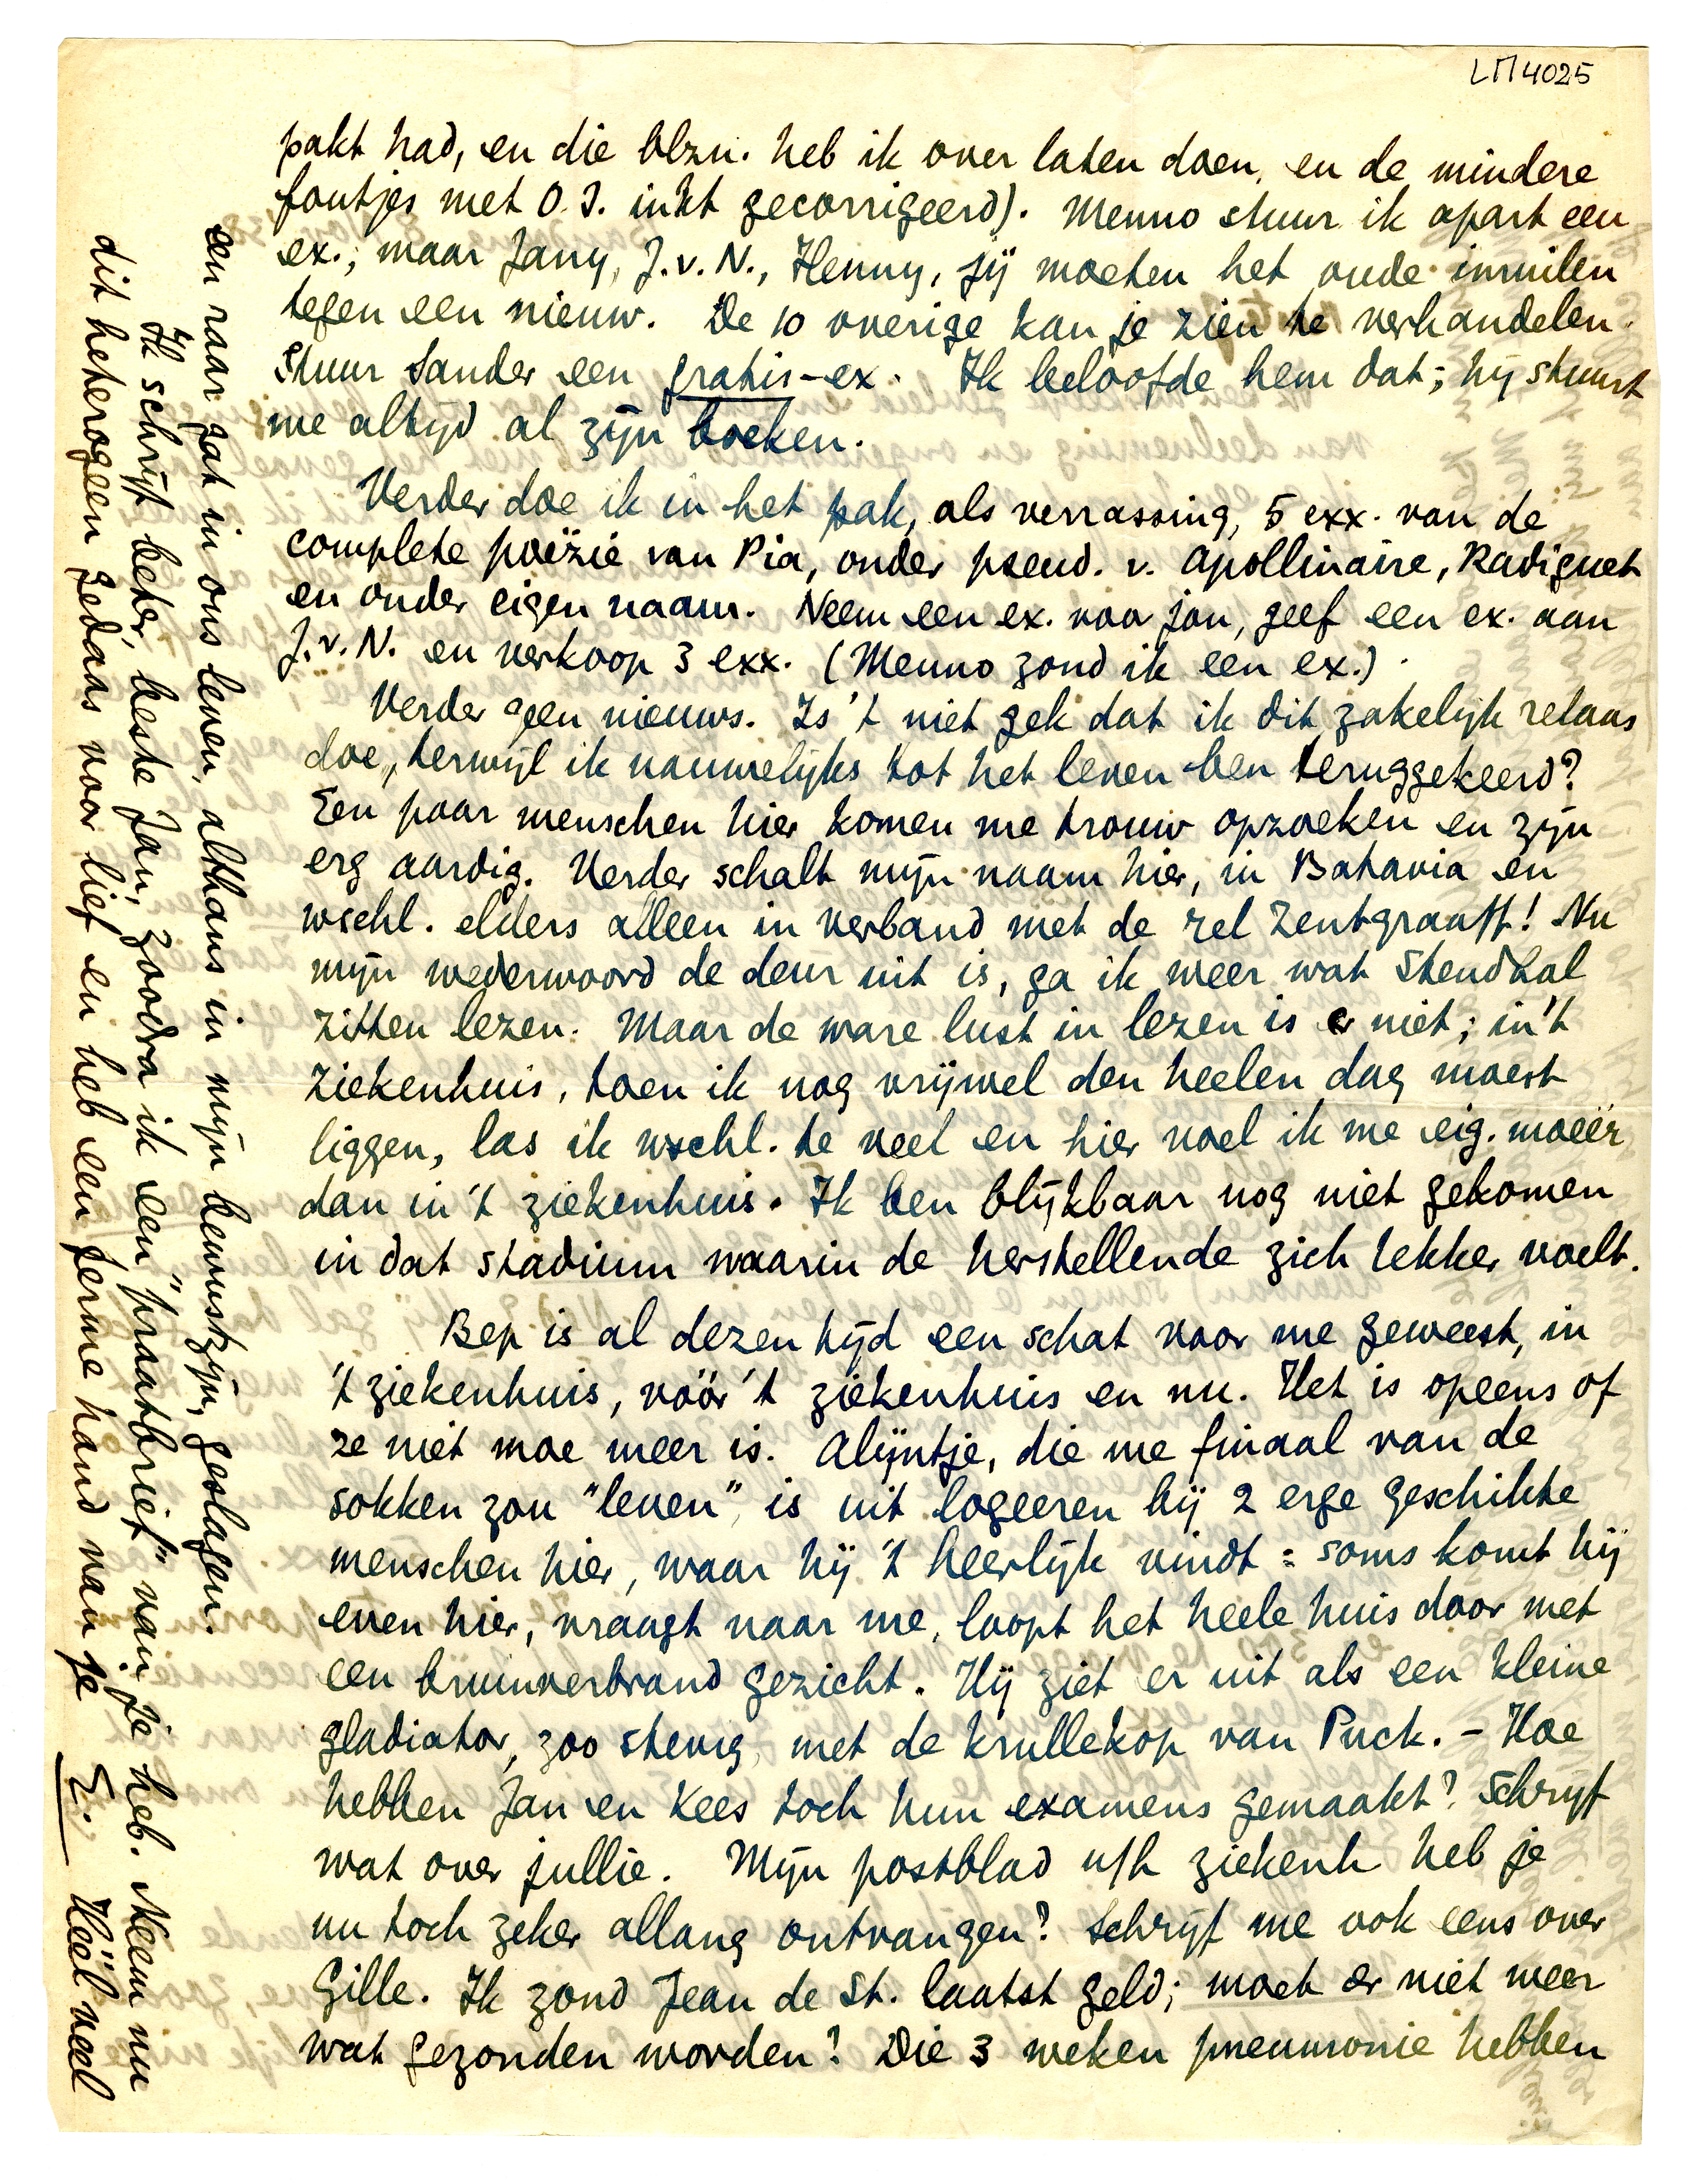 LM 4025
pakt had, en die blzn. heb ik over laten doen, en de mindere
foutjes met O.I. inkt gecorrigeerd). Menno stuur ik apart een
ex.; maar Jany, J.v.N., Henny, jij moeten het oude inruilen
tegen een nieuw. De 10 overige kan je zien te verhandelen.
Stuur Sander een gratis-ex. Ik beloofde hem dat; hij stuurt
me altijd al zijn boeken.
Verder doe ik in het pak, als verrassing, 5 exx. van de
complete poëzie van Pia, onder pseud. v. Apollinaire, Radiguet
en onder eigen naam. Neem een ex. voor jou, geef een ex. aan
J.v.N. en verkoop 3 exx. (Menno zond ik een ex.)
Verder geen nieuws. Is 't niet gek dat ik dit zakelijk relaas
doe, terwijl ik nauwelijks tot het leven ben teruggekeerd?
Een paar menschen hier komen me trouw opzoeken en zijn
erg aardig. Verder schalt mijn naam hier, in Batavia en
wschl. elders alleen in verband met de rel Zentgraaff! Nu
mijn wederwoord de deur uit is, ga ik weer wat Stendhal
zitten lezen. Maar de ware lust in lezen is er niet; in 't
ziekenhuis, toen ik nog vrijwel den heelen dag moest
liggen, las ik wschl. te veel en hier voel ik me eig. moeër
dan in 't ziekenhuis. Ik ben blijkbaar nog niet gekomen
in dat stadium waarin de herstellende zich lekker voelt.
Bep is al dezen tijd een schat voor me geweest, in
't ziekenhuis, vóór 't ziekenhuis en nu. Het is opeens of
ze niet moe meer is. Alijntje, die me finaal van de
sokken zou "leven", is uit logeeren bij 2 erge geschikte
menschen hier, waar hij 't heerlijk vindt: soms komt hij
even hier, vraagt naar me, loopt het heele huis door met
een bruinverbrand gezicht. Hij ziet er uit als een kleine
gladiator, zoo stevig, met de krullekop van Puck. - Hoe
hebben Jan en Kees toch hun examens gemaakt? Schrijf
wat over jullie. Mijn postblad u/h ziekenh heb je
nu toch zeker allang ontvangen? Schrijf me ook eens over
Gille. Ik zond Jean de St. laatst geld; moet er niet meer
wat gezonden worden? Die 3 weken pneumonie hebben
een raar gat in ons leven, althans in mijn bewustzijn, geslagen.
Ik schrijf beter, beste Jan, zoodra ik een "praatbrief" van je heb. Neem nu
dit heterogeen gedaas voor lief en heb een ferme hand van je E. Héél veel